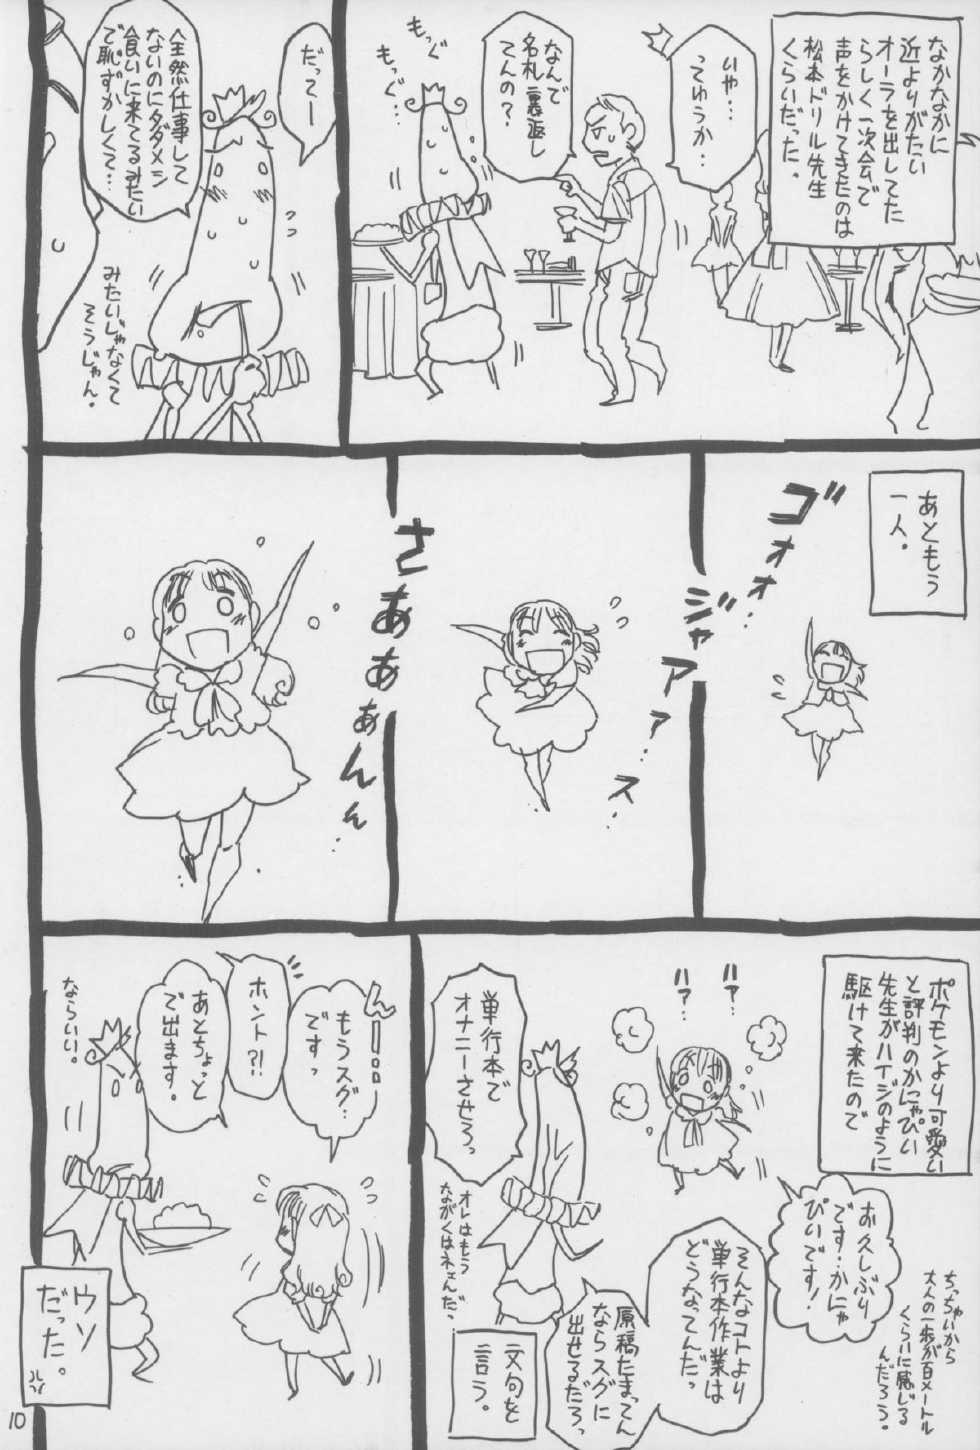 なかなかに
近よりがたい
オーラを出してた
らしく一次会で
声をかけてきたのは
松本ドリル先生
くらいだった。
いや…
ってゆうか…
なんで
名札裏返し
てんの?
もっぐ
もっぐ…
だってー
全然仕事して
ないのにタダメシ
食いに来てるみたい
で恥ずかしくて…
みたいじゃなくて
そうじゃん。
あともう
一人。
ゴォォ…
ジャアアア…ス…
さあぁぁんん
ポケモンより可愛い
と評判のかにゃぴぃ
先生がハイジのように
駆けて来たので
ハァ…
ハァ…
お久しぶり
です…かにゃ
ぴぃです!
ちっちゃいから
大人の一歩が百メートル
くらいに感じる
んだろう。
単行本で
オナニーさせろっ
オレはもう
ながくはネェんだ…
そんなコトより
単行本作業は
どうなってんだっ
原稿たまってん
ならスグに
出せるだろっ
文句を
言う。
んー…
もうスグ…
ですっ
ホント?!
あとちょっと
で出ます。
ならいい。
ウソ
だった。
10